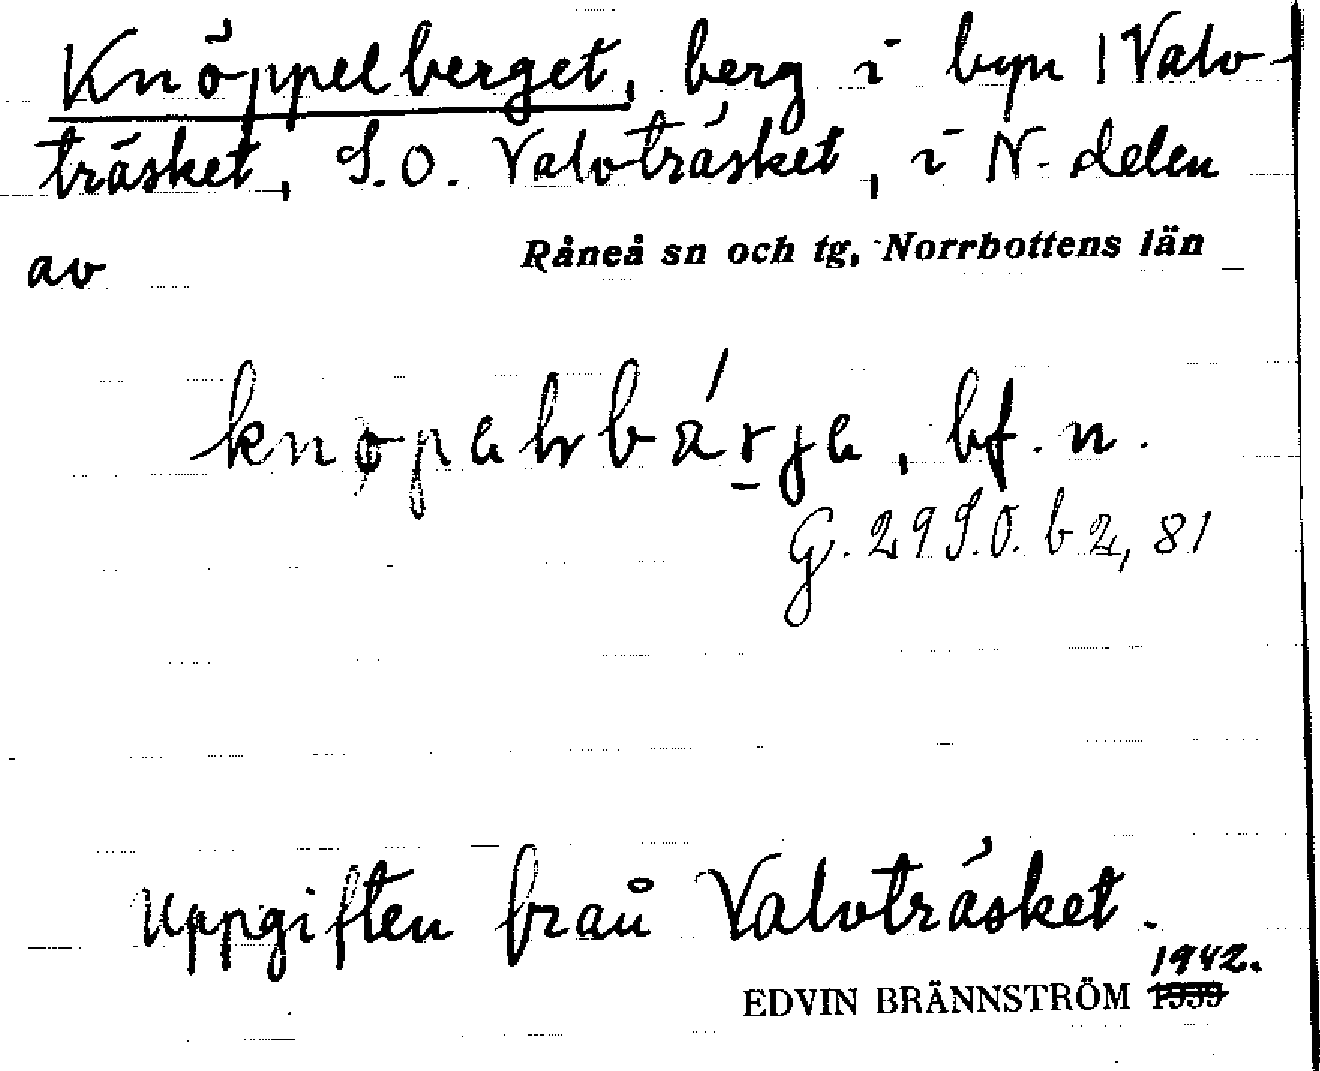 Knöppelberget, berg i byn Valv-
träsket, S.O. Valvträsket, i N. delen
av Råneå sn och tg, Norrbottens län
bf. n.
G. 29 S.O. b 2, 81
Uppgiften från Valvträsket.
1942.
EDVIN BRÄNNSTRÖM 1939